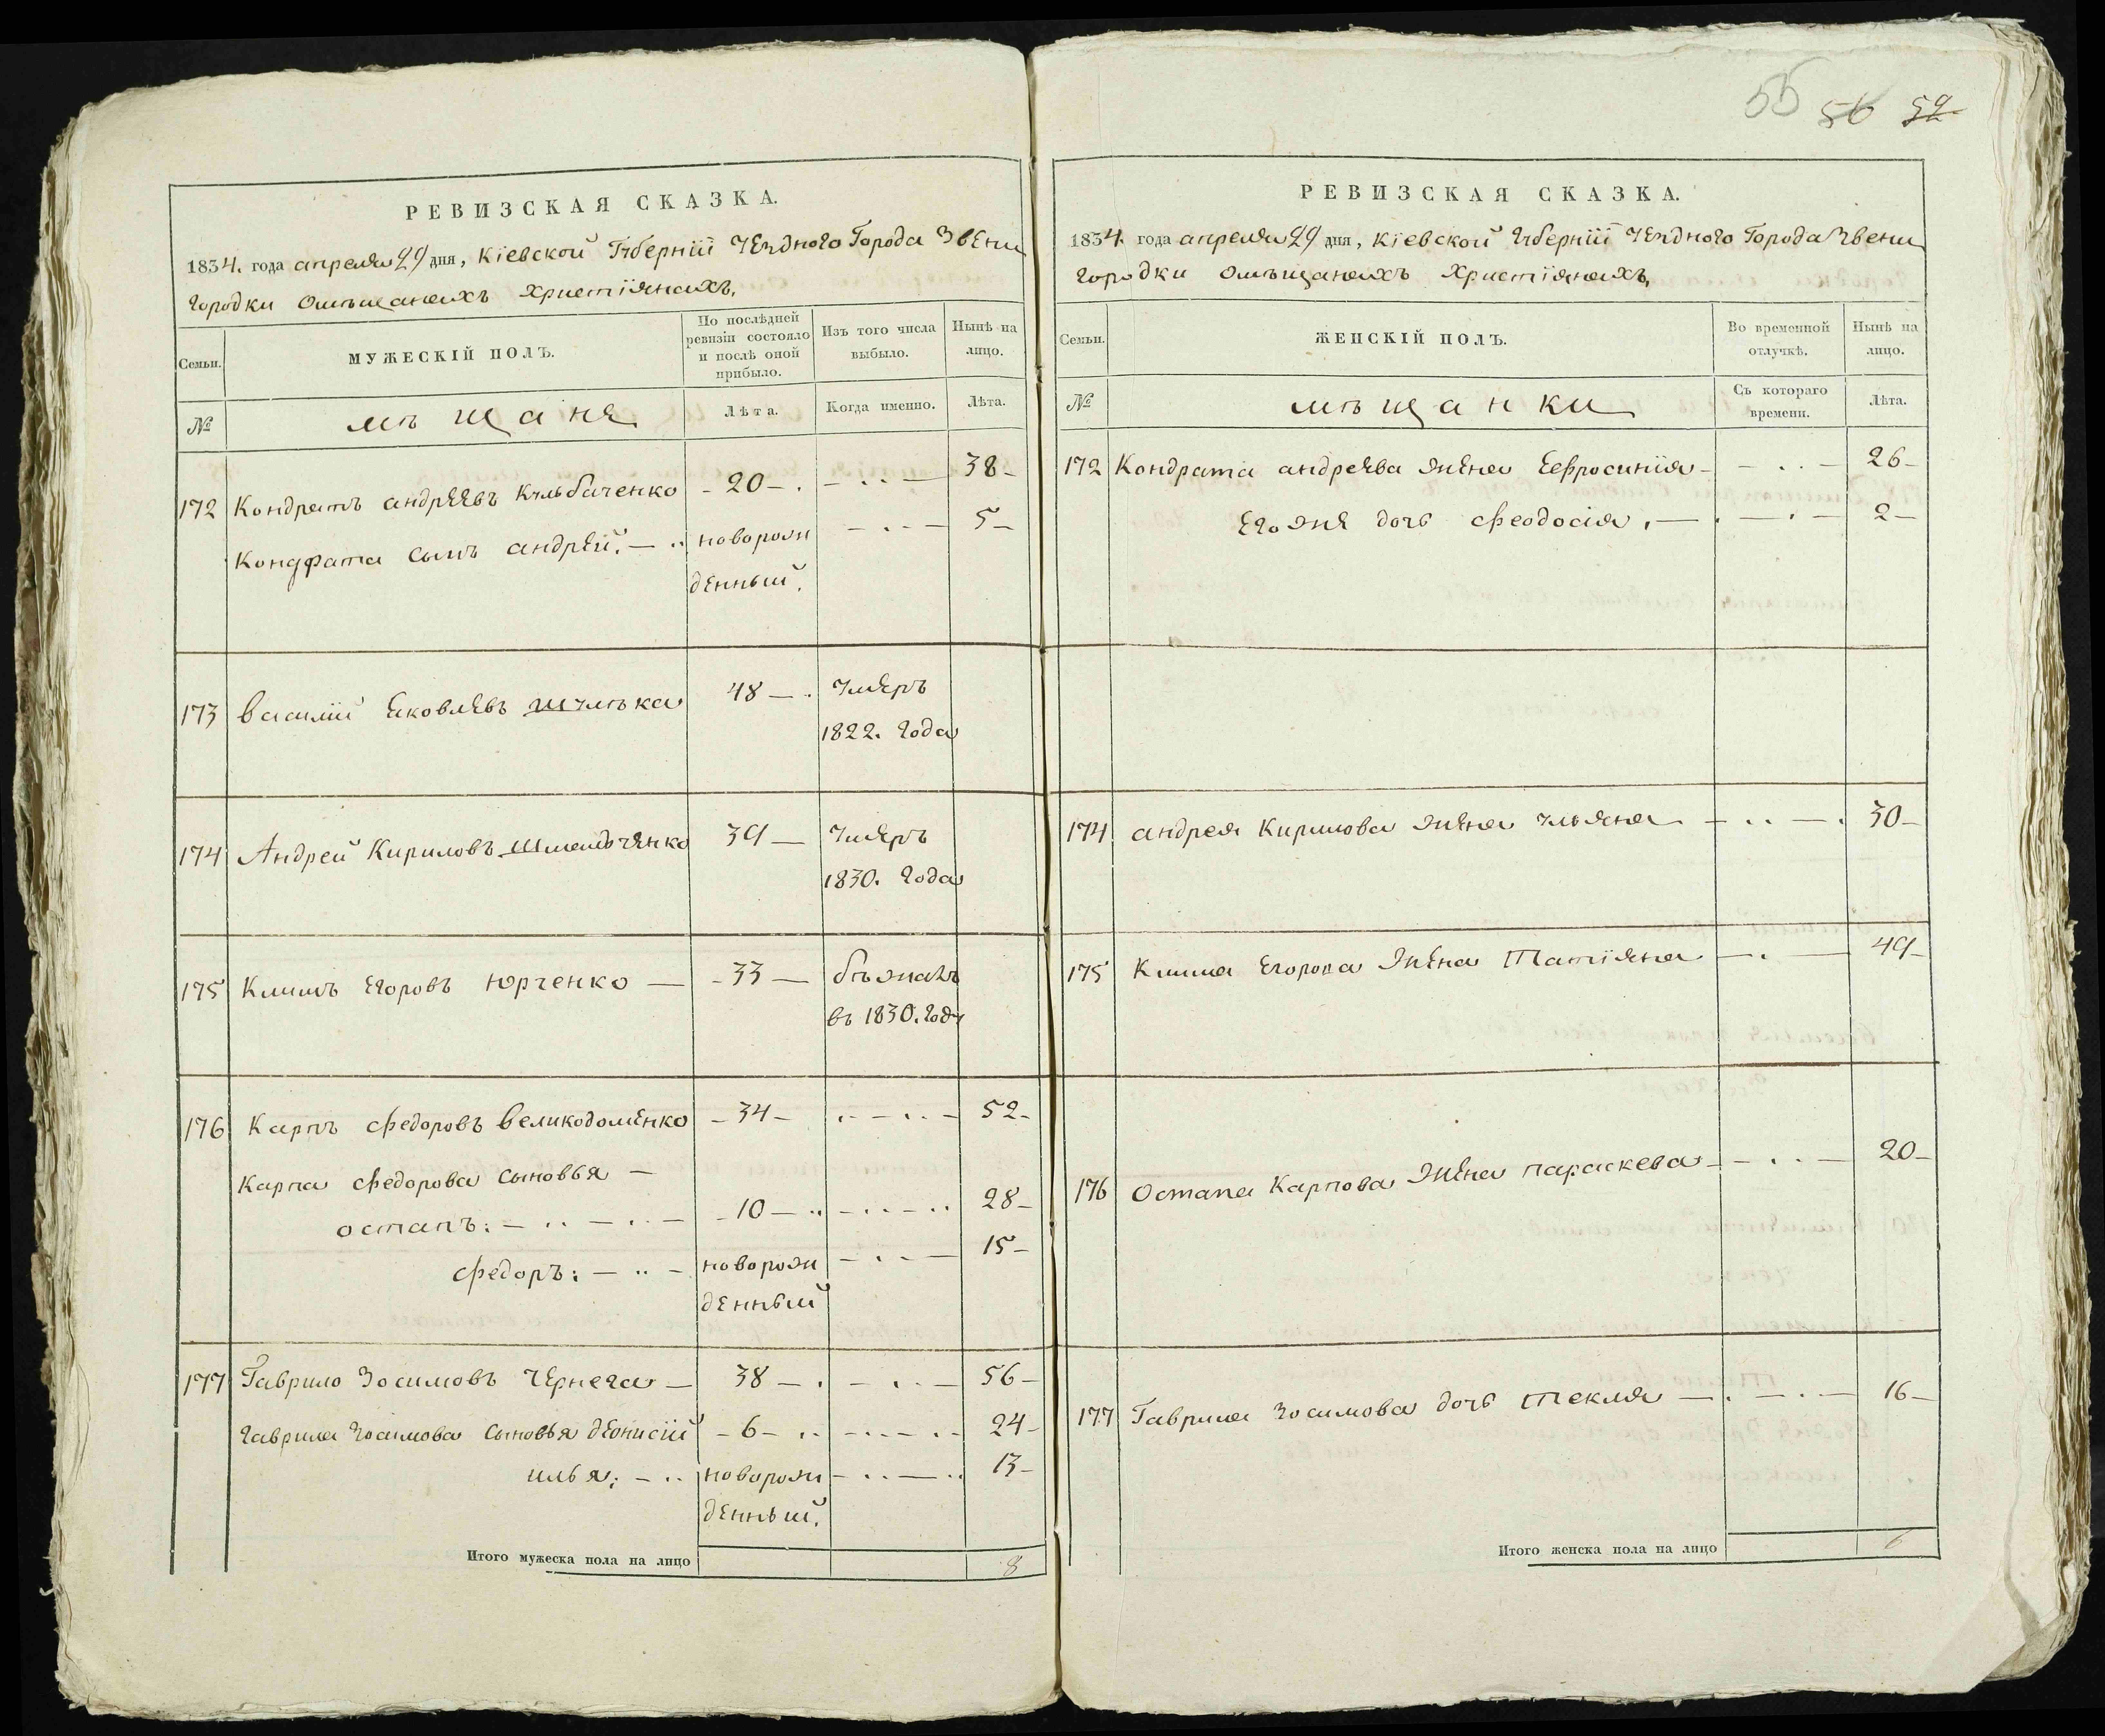 55 56 52
РЕВИЗСКАЯ СКАЗКА.
1834. года апреля 29 дня, Кіевской Губерніи Уезднаго Города Звени
городки омѣщанахъ христіянахъ.
Семьи.
МУЖЕСКІЙ ПОЛЪ.
По послѣдней
ревизіи состояло
и послѣ оной
прибыло.
Изъ того числа
выбыло.
Нынѣ на
лицо.
№
мѣщане
Лѣта.
Когда именно.
Лѣта.
172 Кондратъ андреевъ Кульбаченко 20 38
Кондрата сынъ андрей. новорож 5
денный.
173 василій Яковлевъ Шулѣка 48 Умеръ
1822. года
174 Андрей Кириловъ Шмельченко 39 Умеръ
1830. года
175 Климъ Егоровъ Юрченко 33 бѣжалъ
въ 1830. году
176 Карпъ Федоровъ великодоменко 34 52
Карпа Федорова сыновья
остапъ: 10 28
Федоръ: новорож 15
денный
177 Гаврило Зосимовъ Чернега 38 56
гаврила Зосимова сыновья деонисій 6 24
илья: новорож 13
денный.
Итого мужеска пола на лицо 8
РЕВИЗСКАЯ СКАЗКА.
1834. года апреля 29 дня, Кіевской Губерніи Уезднаго Города Звени
городки омѣщанахъ христіянахъ.
Семьи.
ЖЕНСКІЙ ПОЛЪ.
Во временной
отлучкѣ.
Нынѣ на
лицо.
№
мѣщанки
Съ котораго
времени.
Лѣта.
172 Кондрата андреева жена Еефросинія 26
Его же дочь Феодосія. 2
174 андрея Кирилова жена ульяна 30
175 Клима Егорова жена Татіяна 49
176 Остапа Карпова жена параскева 20
177 Гаврила Зосимова дочь текля 16
Итого женска пола на лицо 6